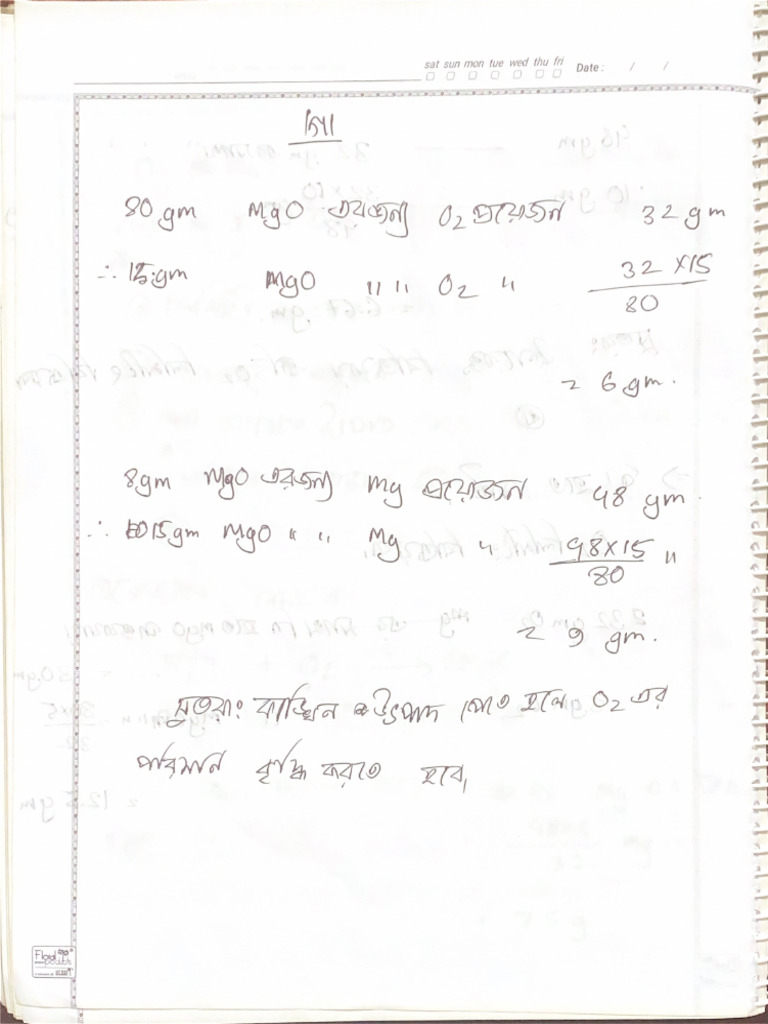 sat sun mon tue wed thu fri Date : / /
80 gm MgO এরজন্য O2 প্রয়োজন 32 gm
∴ 15 gm MgO " " O2 " 32 ×15 / 80
= 6 gm.
8gm MgO এরজন্য Mg প্রয়োজন 48 gm.
∴ 15 gm MgO " " Mg " 48×15 / 80 "
= 9 gm.
সুতরাং কাঙ্খিন উৎপাদ পেতে হলে O2 এর
পরিমান বৃদ্ধি করতে হবে,